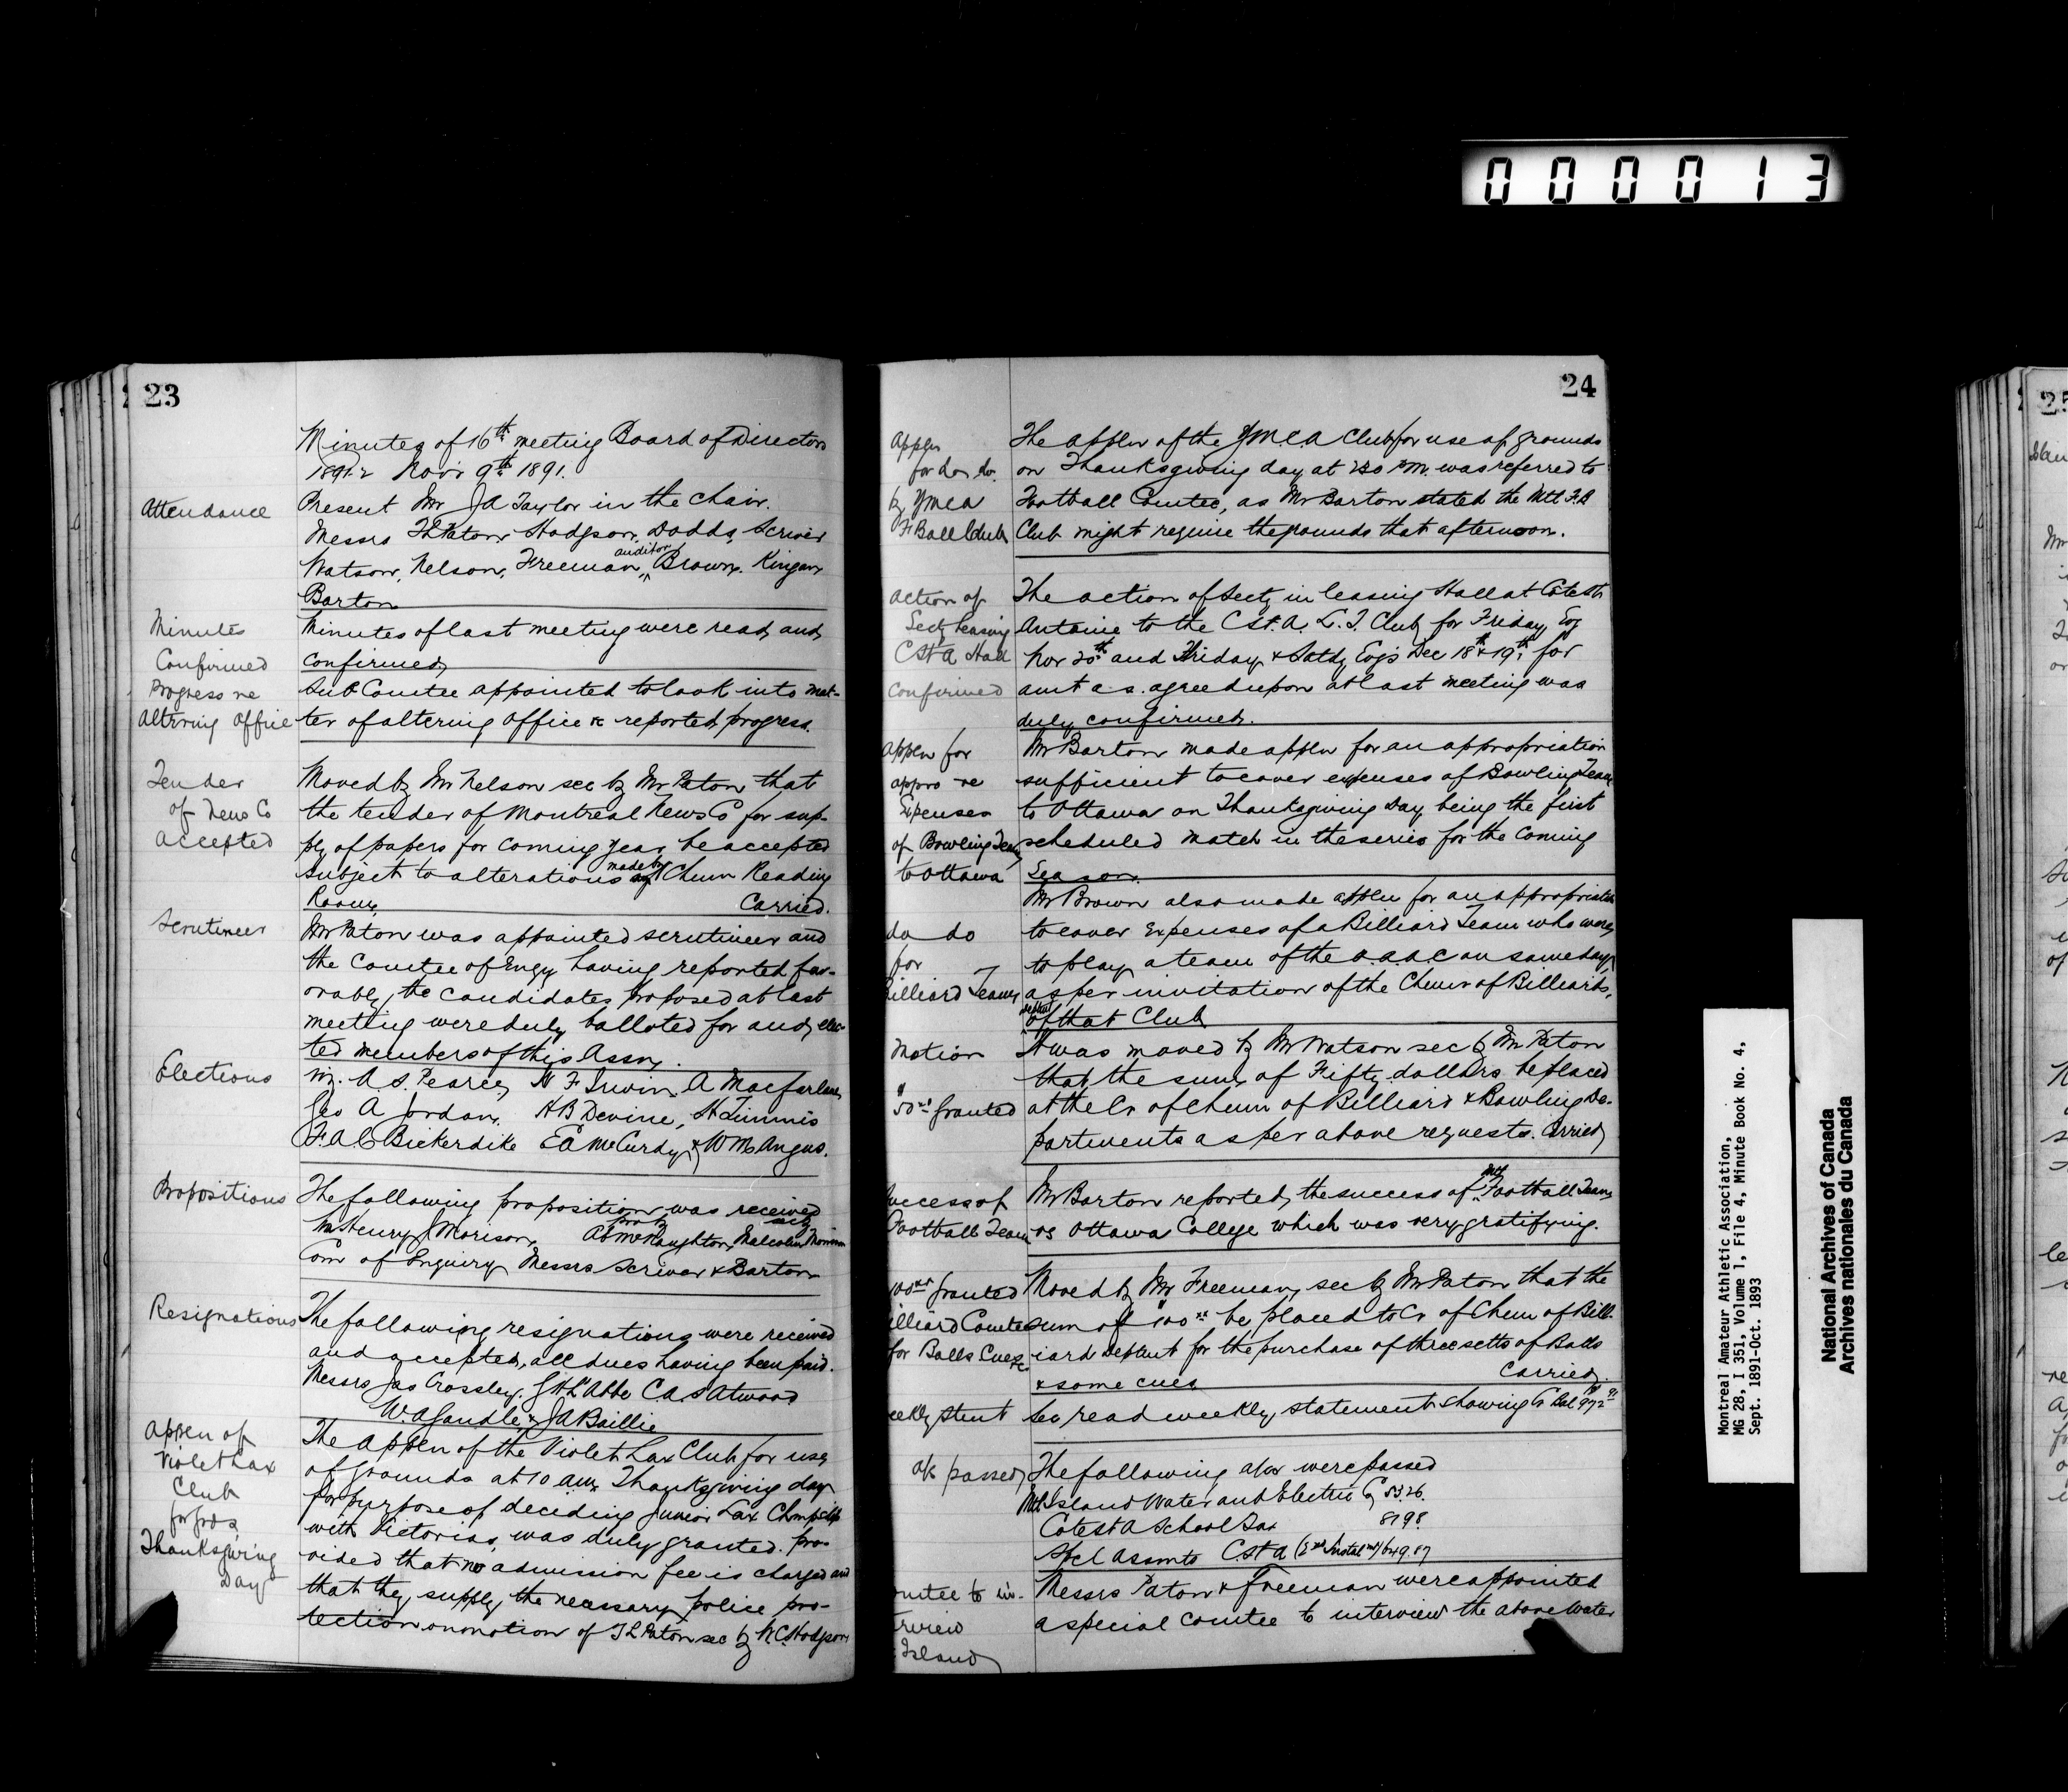 000013
23
Minutes of 16th meeting Board of Directors
1891-2 Novr 9th 1891.
Attendance
Present Mr J A Taylor in the chair.
Messrs T L Paton, Hodgson, Dodds, Scriver
Watson, Nelson, Freeman, auditor Brown, Kingan
Barton
Minutes
Confirmed
Minutes of last meeting were read and
confirmed
Progress re
altering office
Sub Comtee appointed to look into mat-
ter of altering office &c reported progress.
Tender
of News Co
accepted
Moved by Mr Nelson sec by Mr Paton that
the tender of Montreal News Co for sup-
ply of papers for coming year be accepted
subject to alterations made by Chmn Reading
Room Carried.
Scrutineer
Mr Paton was appointed scrutineer and
the Comtee of Enqy having reported fav-
orably, the candidates proposed at last
meeting were duly balloted for and elec-
ted members of this Assn.
Elections
viz. A S. Pearce, H F Irwin, A Macfarlane
Geo A Jordan, A B Devine, H Timmis
F. A. C Bickerdike E A McCurdy & W M Angus.
Propositions
The following proposition was received
Mr Henry J Morison, prop by A E McNaughton, sec by Malcolm Morison
Com of Enquiry Messrs Scriver & Barton
Resignations
The following resignations were received
and accepted, all dues having been paid.
Messrs Jas Crossley, G H L'Abbe C. A. S Atwood
W. A Gandle & J A Baillie
Applcn of
Violet Lax
Club
for grds
Thanksgiving
Day
The Applcn of the Violet Lax Club for use
of grounds at 10 a.m. Thanksgiving day
for purpose of deciding Junior Lax Chmpship
with Victorias, was duly granted. pro-
vided that no admission fee is charged and
that they supply the necessary police pro-
tection on motion of T L Paton sec by W. C. Hodgson
24
Applcn
for do do.
by YMCA
F. Ball Club
The applcn of the Y.M.C.A Club for use of grounds
on Thanksgiving day at 2.30 P.M. was referred to
Football Comtee, as Mr Barton stated the Mtl F.B
Club might require the grounds that afternoon.
Action of
Secty leasing
C St A Hall
confirmed
The action of Secty in leasing Hall at Cote St
Antoine to the C St. A. L. T. Club for Friday Evg
Nov 20th and Friday & Satdy Evgs Dec 18th & 19th for
amt as agreed upon at last meeting was
duly confirmed.
Applcn for
appro re
Expenses
of Bowling Team
to Ottawa
Mr Barton made applcn for an appropriation
sufficient to cover expenses of Bowling Team
to Ottawa on Thanksgiving Day, being the first
scheduled match in the series for the coming
Season.
do do
for
Billiard Team
Mr Brown also made applcn for an appropriation
to cover Expenses of a Billiard Team who were
to play a team of the O.A.A.C on same day,
as per invitation of the Chmn of Billiard,
deptmt of that Club
Motion
$50.00 granted
It was moved by Mr Watson sec by Mr Paton
that the sum of Fifty dollars be placed
at the Cr of Chmn of Billiard & Bowling De-
partments as per above requests. Carried
uccess of
Football Team
Mr Barton reported, the success of Mtl Football Team
vs Ottawa College which was very gratifying.
100.00 granted
illiard Comtee
for Balls Cues &c
Moved by Mr Freeman, sec by Mr Paton that the
sum of $100.00 be placed to Cr of Chmn of Bill-
iard Deptmt for the purchase of three setts of Balls
& some cues Carried.
eekly Stmt
Sec read weekly statement showing Cr Bal
a/cs passed
The following a/cs were passed
Mtl Island Water and Electric Co 53.26.
Cote St A School Tax 87.98.
Spcl Assmts C. St A (2nd Instalmt) 649.87
omtee to in-
erview
Island
Messrs Paton & Freeman were appointed
a special comtee to interview the above Water
Montreal Amateur Athletic Association,
MG 28, I 351, Volume 1, File 4, Minute Book No. 4,
Sept. 1891-Oct. 1893
National Archives of Canada
Archives nationales du Canada